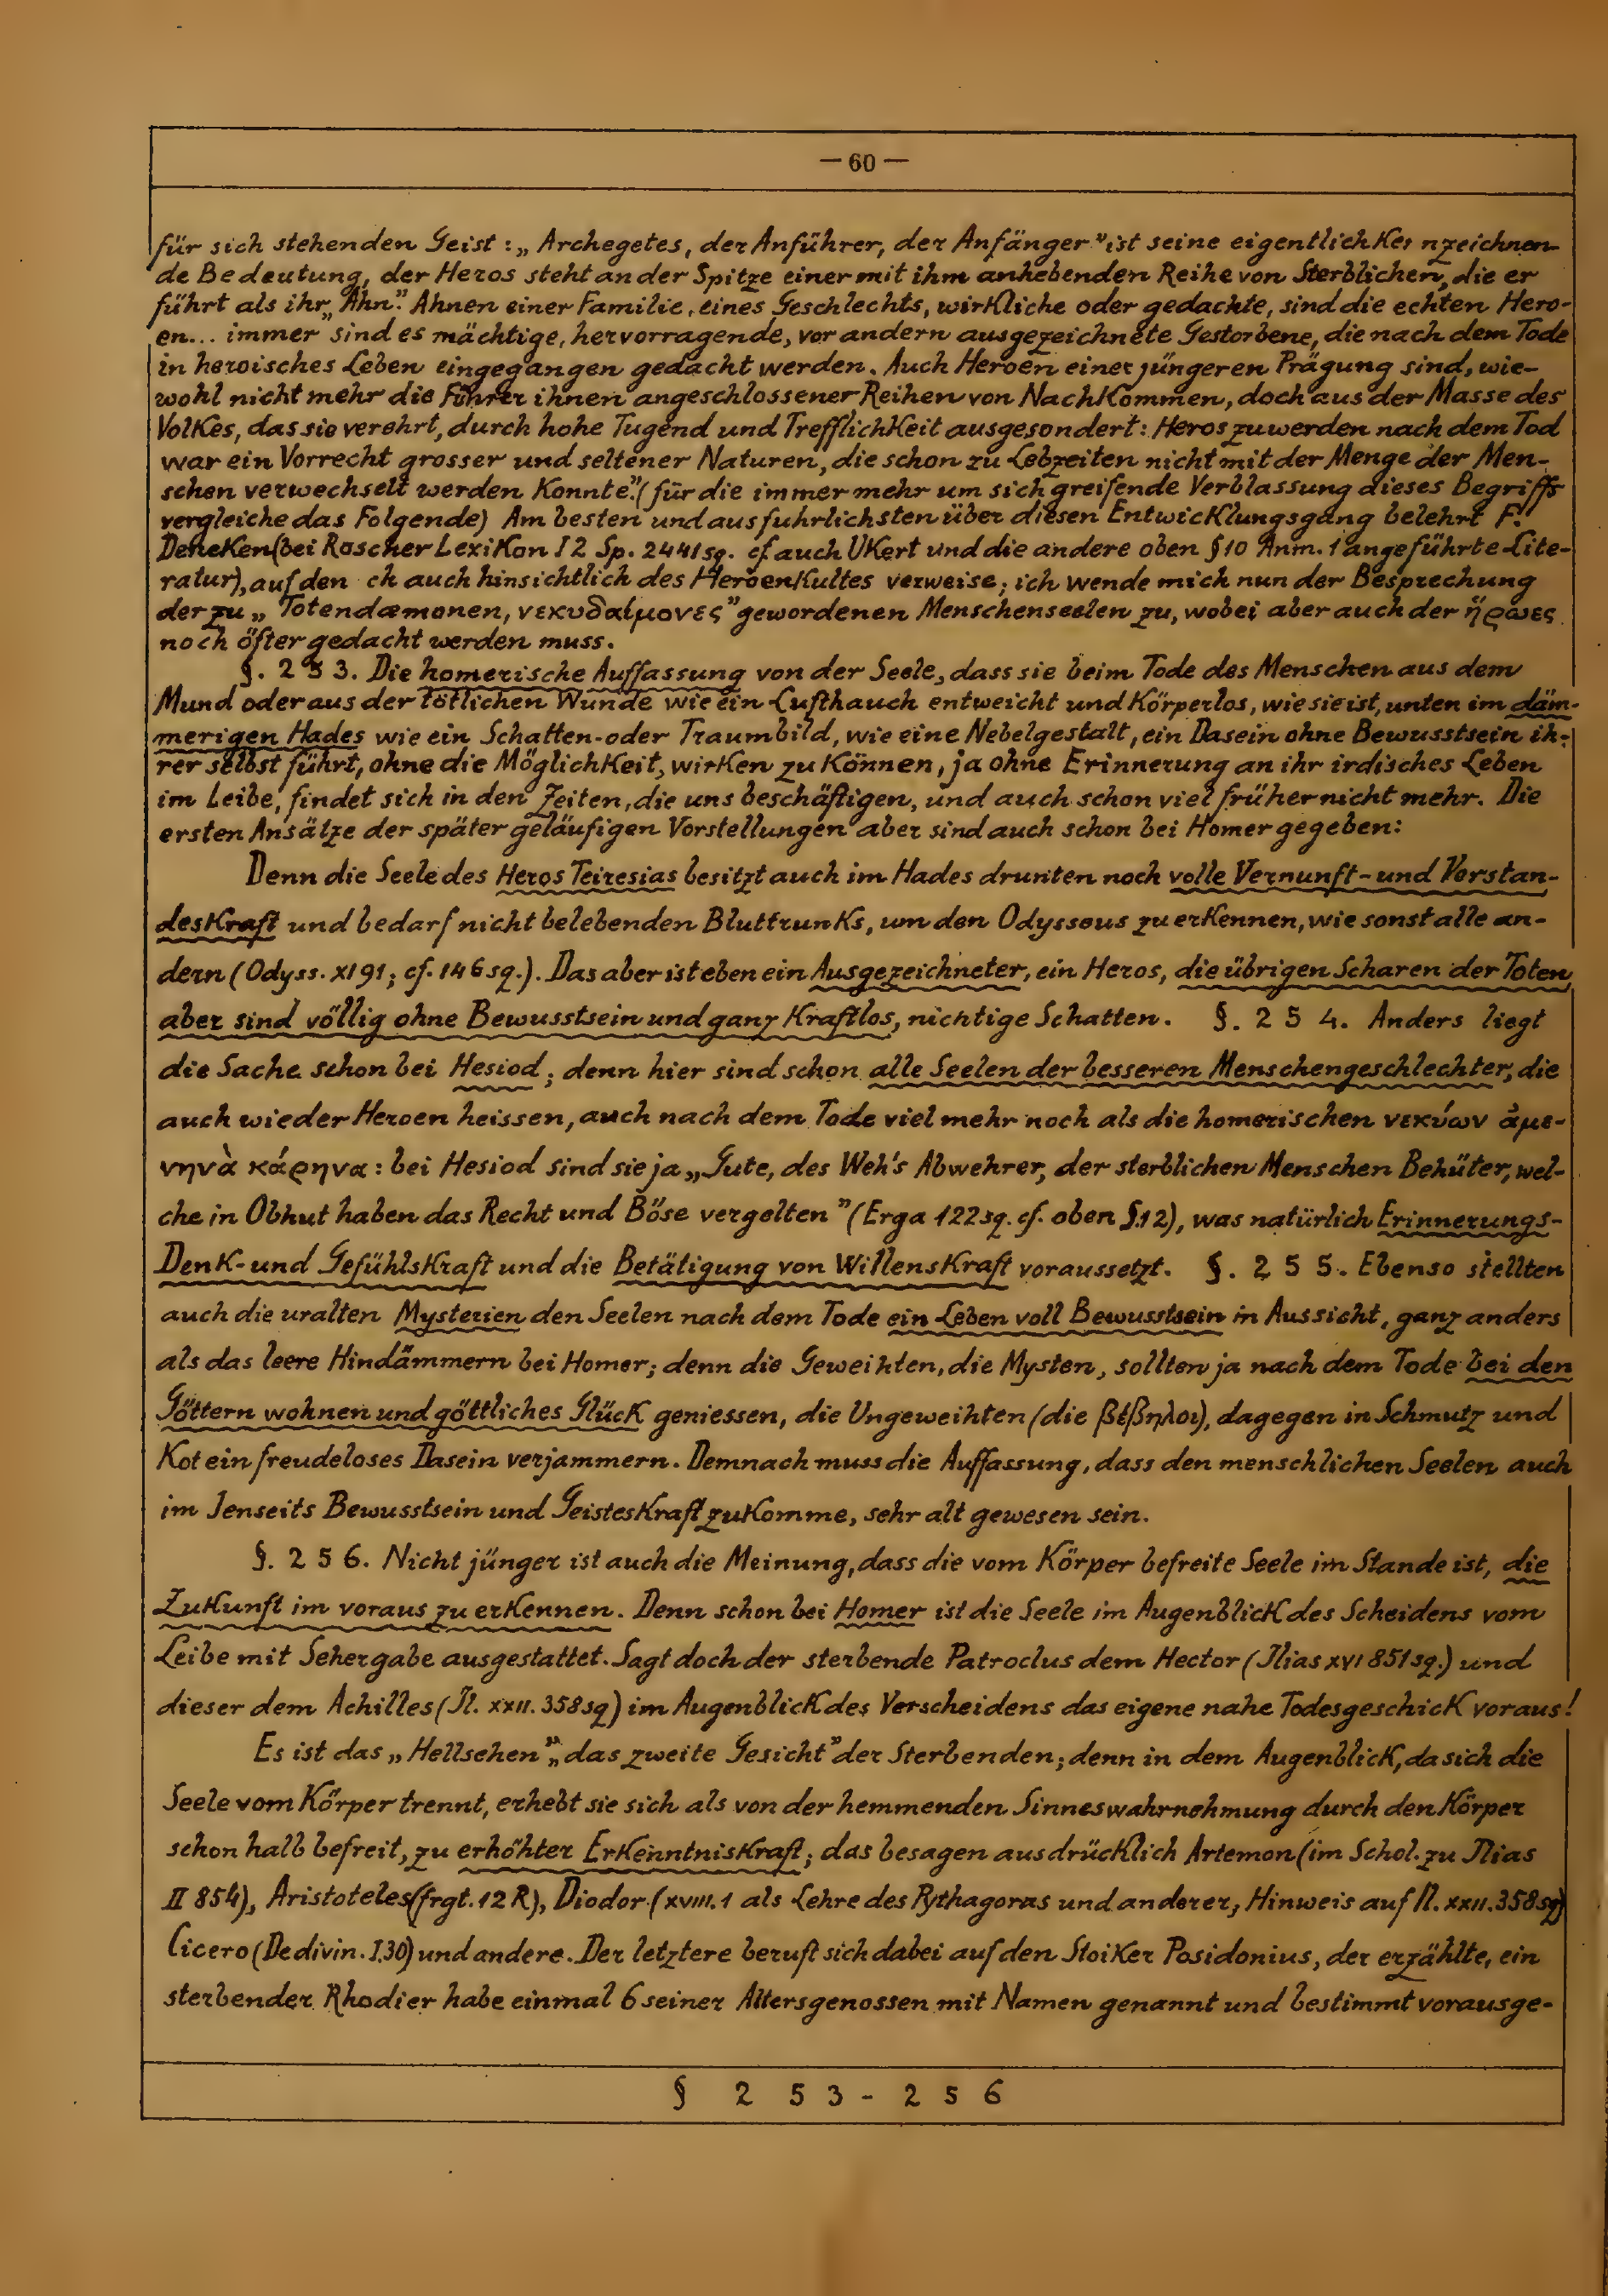 — 60 —
für sich stehenden Geist: „Archegetes, der Anführer, der Anfänger” ist seine eigentlich Ke nzeichnen-
de Bedeutung, der Heros steht an der Spitze einer mit ihm anhebenden Reihe von Sterblichen, die er
führt als ihr „Ahn”. Ahnen einer Familie, eines Geschlechts, wirkliche oder gedachte, sind die echten Hero-
en... immer sind es mächtige, hervorragende, vor andern ausgezeichnete Gestorbene, die nach dem Tode
in heroisches Leben eingegangen gedacht werden. Auch Heroen einer jüngeren Prägung sind, wie-
wohl nicht mehr die Führer ihnen angeschlossener Reihen von Nachkommen, doch aus der Masse des
Volkes, das sie verehrt, durch hohe Tugend und Trefflichkeit ausgesondert: Heros zu werden nach dem Tod
war ein Vorrecht grosser und seltener Naturen, die schon zu Lebzeiten nicht mit der Menge der Men-
schen verwechselt werden konnte.” (für die immer mehr um sich greifende Verblassung dieses Begriffs
vergleiche das Folgende) Am besten und ausfuhrlichsten über diesen Entwicklungsgang belehrt F.
Deneken (bei Roscher Lexikon I 2 Sp. 2441 sq. cf auch Ukert und die andere oben §10 Anm. 1 angeführte Lite-
ratur), auf den ch auch hinsichtlich des Heroenkultes verweise; ich wende mich nun der Besprechung
der zu „Totendæmonen, νεκυδαίμονες” gewordenen Menschenseelen zu, wobei aber auch der ἥρωες
noch öfter gedacht werden muss.
§. 2 5 3. Die homerische Auffassung von der Seele, dass sie beim Tode des Menschen aus dem
Mund oder aus der tötlichen Wunde wie ein Lufthauch entweicht und körperlos, wie sie ist, unten im däm-
merigen Hades wie ein Schatten- oder Traumbild, wie eine Nebelgestalt, ein Dasein ohne Bewusstsein ih-
rer selbst führt, ohne die Möglichkeit, wirken zu können, ja ohne Erinnerung an ihr irdisches Leben
im Leibe, findet sich in den Zeiten, die uns beschäftigen, und auch schon viel früher nicht mehr. Die
ersten Ansätze der später geläufigen Vorstellungen aber sind auch schon bei Homer gegeben:
Denn die Seele des Heros Teiresias besitzt auch im Hades drunten noch volle Vernunft- und Verstan-
deskraft und bedarf nicht belebenden Bluttrunks, um den Odysseus zu erkennen, wie sonst alle an-
dern (Odyss. XI 91; cf. 146 sq.). Das aber ist eben ein Ausgezeichneter, ein Heros, die übrigen Scharen der Toten
aber sind völlig ohne Bewusstsein und ganz kraftlos, nichtige Schatten. §. 2 5 4. Anders liegt
die Sache schon bei Hesiod; denn hier sind schon alle Seelen der besseren Menschengeschlechter, die
auch wieder Heroen heissen, auch nach dem Tode viel mehr noch als die homerischen νεκύων ἀμε-
νηνὰ κάρηνα: bei Hesiod sind sie ja „Gute, des Weh's Abwehrer, der sterblichen Menschen Behüter, wel-
che in Obhut haben das Recht und Böse vergelten” (Erga 122 sq. cf. oben §.12), was natürlich Erinnerungs-
Denk- und Gefühlskraft und die Betätigung von Willenskraft voraussetzt. §. 2 5 5. Ebenso stellten
auch die uralten Mysterien den Seelen nach dem Tode ein Leben voll Bewusstsein in Aussicht, ganz anders
als das leere Hindämmern bei Homer; denn die Geweihten, die Mysten, sollten ja nach dem Tode bei den
Göttern wohnen und göttliches Glück geniessen, die Ungeweihten (die βέβηλοι), dagegen in Schmutz und
Kot ein freudeloses Dasein verjammern. Demnach muss die Auffassung, dass den menschlichen Seelen auch
im Jenseits Bewusstsein und Geisteskraft zukomme, sehr alt gewesen sein.
§. 2 5 6. Nicht jünger ist auch die Meinung, dass die vom Körper befreite Seele im Stande ist, die
Zukunft im voraus zu erkennen. Denn schon bei Homer ist die Seele im Augenblick des Scheidens vom
Leibe mit Sehergabe ausgestattet. Sagt doch der sterbende Patroclus dem Hector (Ilias XVI 851 sq.) und
dieser dem Achilles (Il. XXII. 358 sq) im Augenblick des Verscheidens das eigene nahe Todesgeschick voraus!
Es ist das „Hellsehen”, „das zweite Gesicht” der Sterbenden; denn in dem Augenblick, da sich die
Seele vom Körper trennt, erhebt sie sich als von der hemmenden Sinneswahrnehmung durch den Körper
schon halb befreit, zu erhöhter Erkenntniskraft; das besagen ausdrücklich Artemon (im Schol. zu Ilias
II 854), Aristoteles (frgt. 12 R), Diodor (XVIII. 1 als Lehre des Pythagoras und anderer, Hinweis auf Il. XXII. 358 sq)
Cicero (De divin. I.30) und andere. Der letztere beruft sich dabei auf den Stoiker Posidonius, der erzählte, ein
sterbender Rhodier habe einmal 6 seiner Altersgenossen mit Namen genannt und bestimmt vorausge-
§ 2 5 3 - 2 5 6